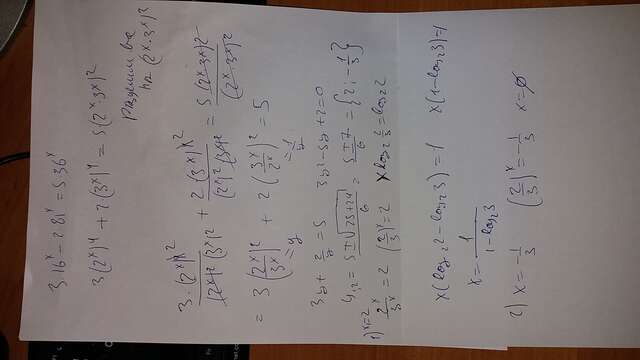 3·16^x − 2·81^x = 5·36^x
3(2^x)^4 + 2·(3^x)^4 = 5(2^x·3^x)^2
Разделим все
на (2^x·3^x)^2
3·(2^x)^4 / (2^x)^2 (3^x)^2 + 2(3^x)^4 / (2^x)^2 (3^x)^2 = 5(2^x·3^x)^2 / (2^x·3^x)^2
= 3(2^x/3^x)^2 + 2(3^x/2^x)^2 = 5
=y =1/y
3y + 2/y = 5 3y^2 − 5y + 2 = 0
y1,2 = 5 ± √(25+24) / 6 = 5 ± 7 / 6 = {2; −1/3}
1) x=2
2^x/3^x = 2 (2/3)^x = 2 x log2 2/3 = log2 2
x(log2 2 − log2 3) = 1 x(1−log2 3) = 1
x = 1 / 1−log2 3
2) x = −1/3 (2/3)^x = −1/3 x = ∅